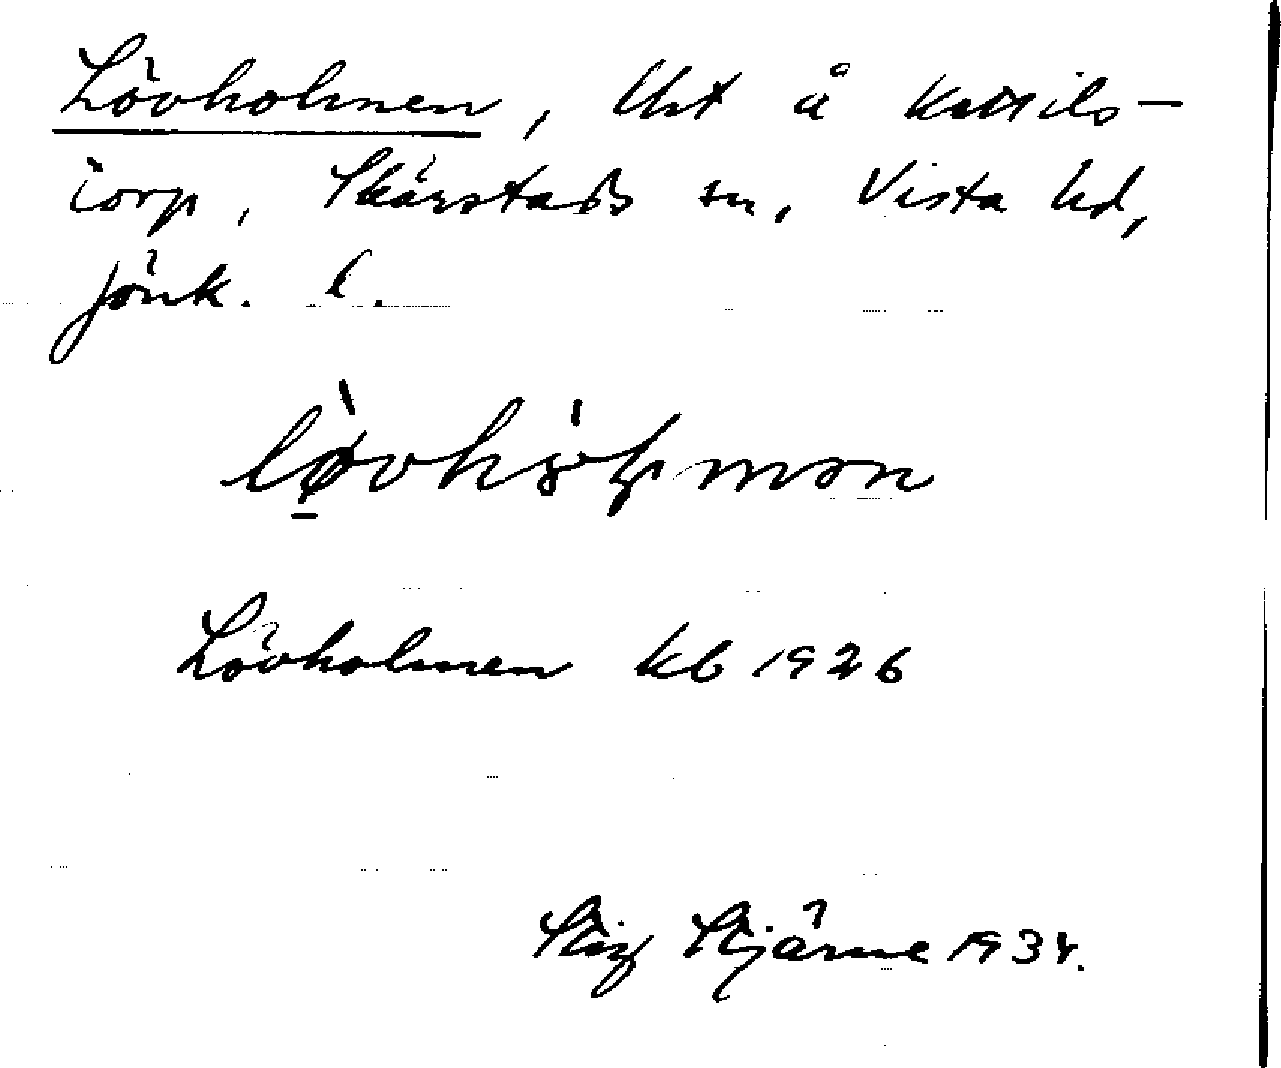 Lövholmen, Ust å Kättils-
torp, Skärstads sn, Vista hd,
Jönk. l.
Lövholmen kb 1926
Stig Stjärne 1934.